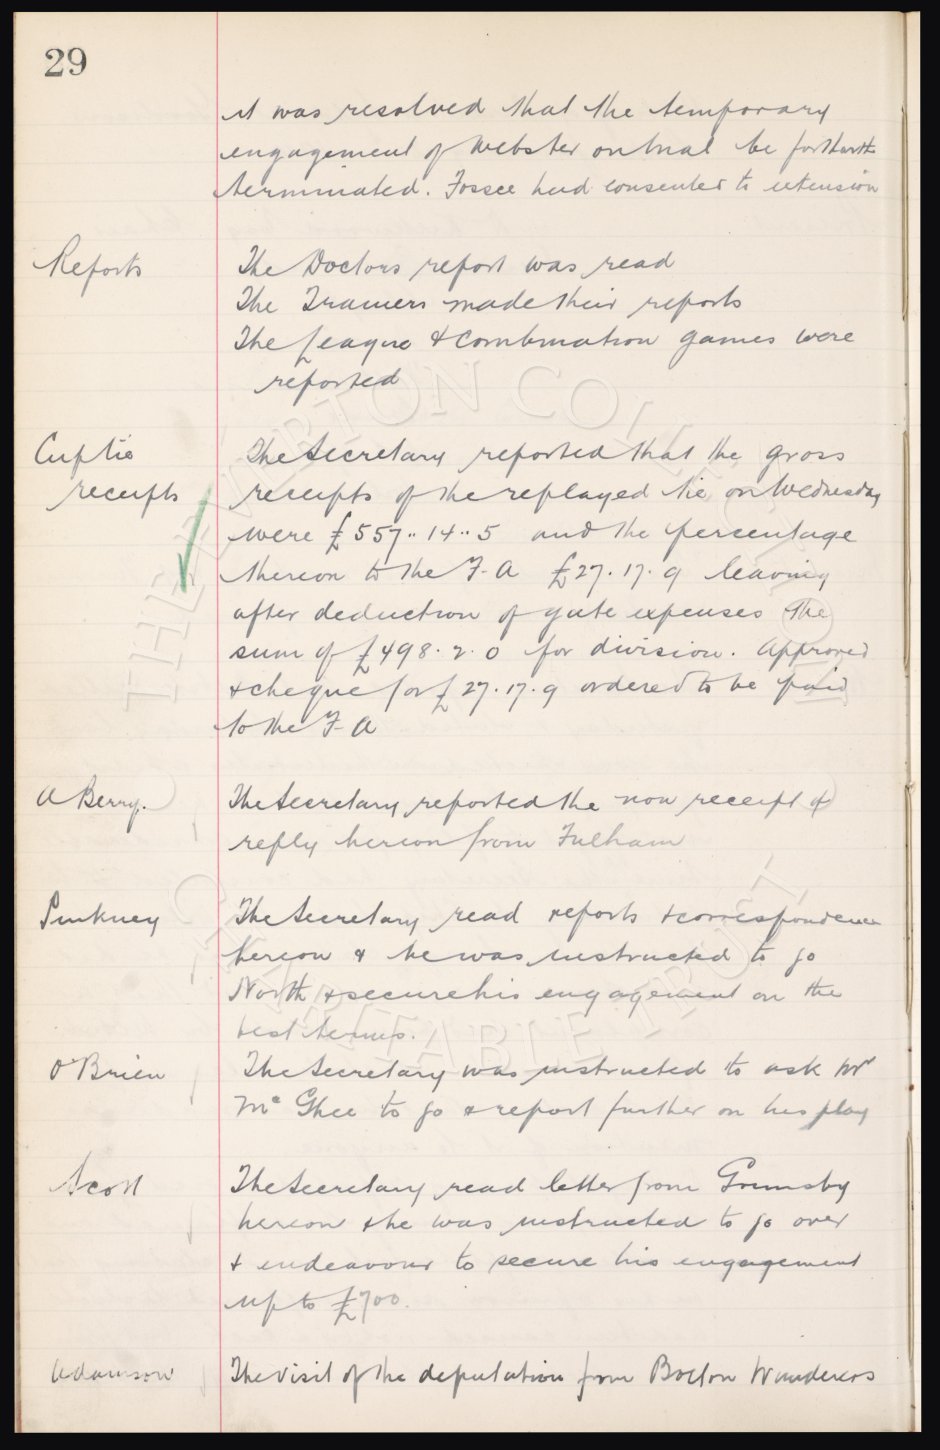 29
it was resolved that the temporary
engagement of Webster on trial be forthwith
terminated. Fosse had consented to extension
Reports
The Doctors report was read
The Trainers made their reports
The League & Combination games were
reported
Cup tie
receipts
The Secretary reported that the gross
receipts of the replayed tie on Wednesday
were £557..14..5 and the percentage
thereon to the F.A £27.17.9 leaving
after deduction of gate expenses the
sum of £498.2.0 for division. Approved
& cheque for £27.17.9 ordered to be paid
to the F A
A Berry.
The Secretary reported the non receipt of
reply hereon from Fulham
Pinkney
The Secretary read reports & correspondence
hereon & he was instructed to go
North & secure his engagement on the
best terms.
O'Brien
The Secretary was instructed to ask Mr
Mc Ghee to go & report further on his play
Scott
The Secretary read letter from Grimsby
hereon & he was instructed to go over
& endeavour to secure his engagement
up to £700.
Adamson
The visit of the deputation from Bolton Wanderers
THE EVERTON COLLECTION
CHARITABLE TRUST